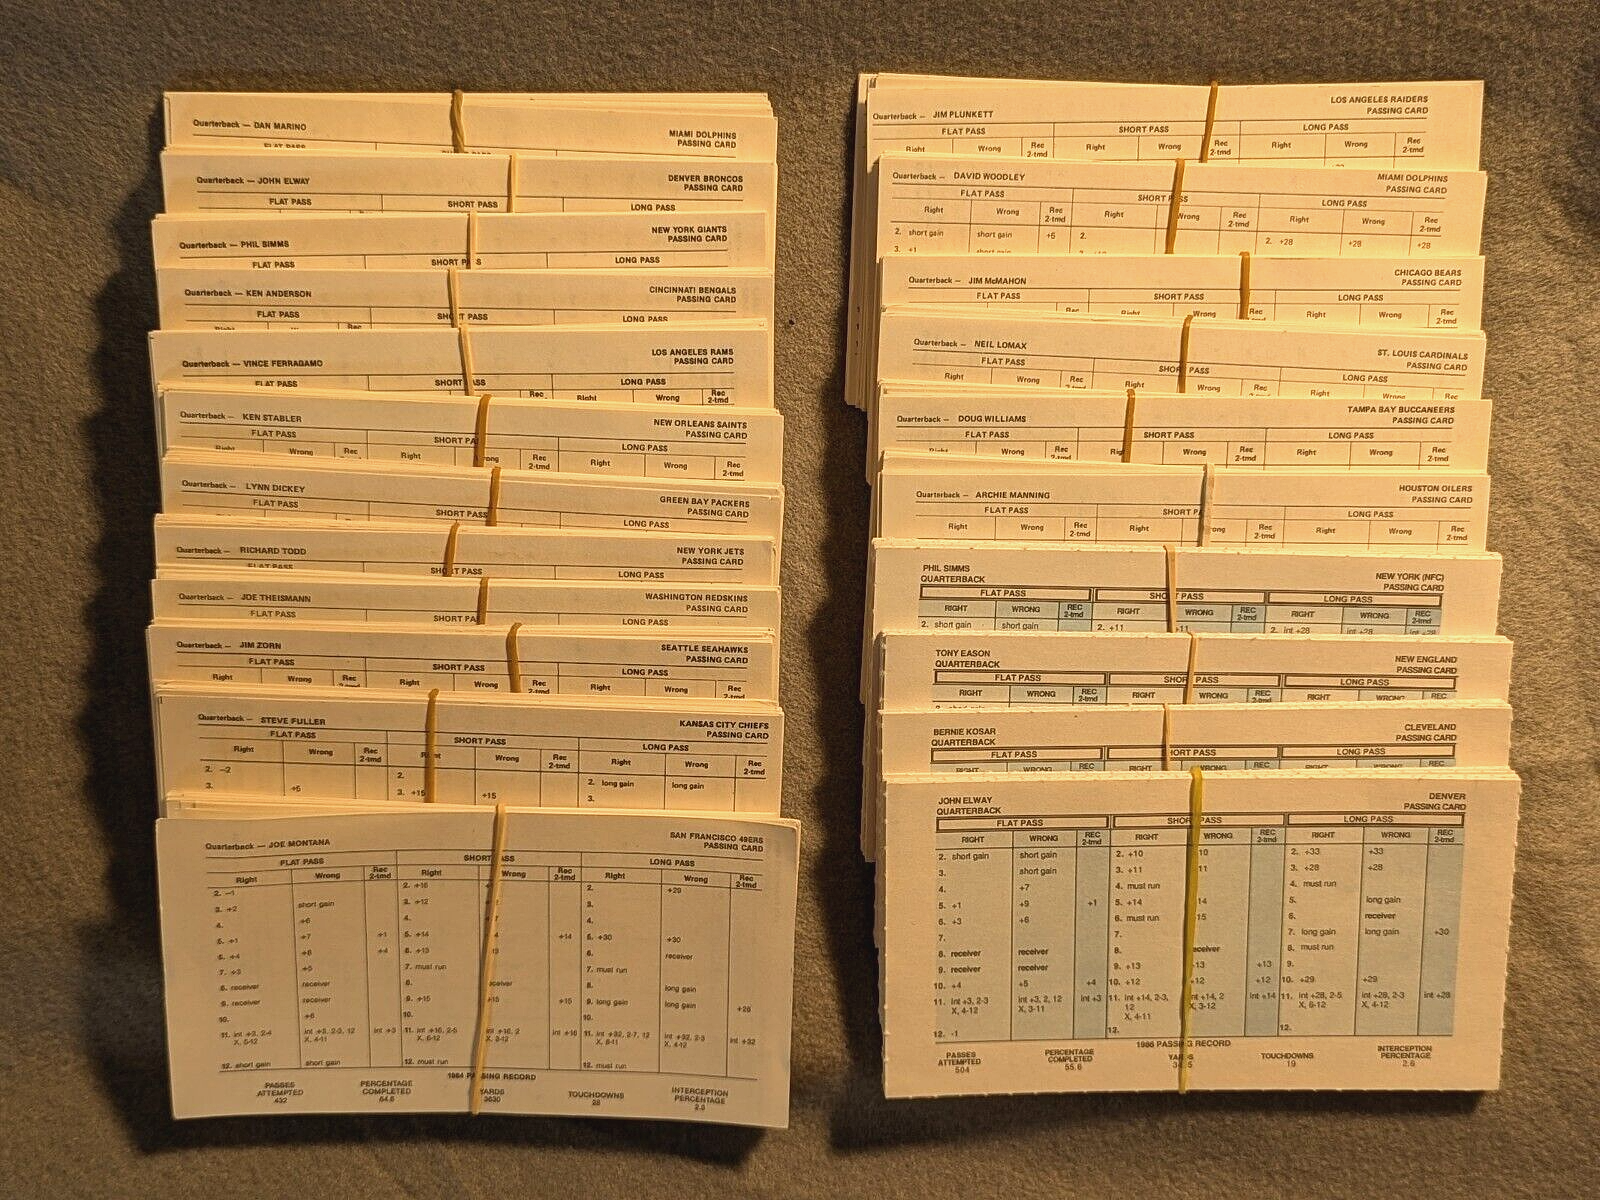 Quarterback — DAN MARINO
MIAMI DOLPHINS
PASSING CARD
FLAT PASS
Quarterback — JOHN ELWAY
DENVER BRONCOS
PASSING CARD
FLAT PASS SHORT PASS LONG PASS
Quarterback — PHIL SIMMS
NEW YORK GIANTS
PASSING CARD
FLAT PASS SHORT P S LONG PASS
Quarterback — KEN ANDERSON
CINCINNATI BENGALS
PASSING CARD
FLAT PASS SHORT PASS LONG PASS
Right Rec
Quarterback — VINCE FERRAGAMO
LOS ANGELES RAMS
PASSING CARD
FLAT PASS SHORT LONG PASS
Rec Right Wrong Rec
2-tmd
Quarterback — KEN STABLER
NEW ORLEANS SAINTS
PASSING CARD
FLAT PASS SHORT PA LONG PASS
Right Wrong Rec Right Rec Right Wrong Rec
2-tmd
Quarterback — LYNN DICKEY
GREEN BAY PACKERS
PASSING CARD
FLAT PASS SHORT PASS LONG PASS
Quarterback — RICHARD TODD
NEW YORK JETS
PASSING CARD
FLAT PASS SHORT PASS LONG PASS
Quarterback — JOE THEISMANN
WASHINGTON REDSKINS
PASSING CARD
FLAT PASS SHORT PAS LONG PASS
Quarterback — JIM ZORN
SEATTLE SEAHAWKS
PASSING CARD
FLAT PASS SHORT PASS LONG PASS
Right Wrong Rec Right Wrong Rec Right Wrong Rec
2-tmd
Quarterback — STEVE FULLER
KANSAS CITY CHIEFS
PASSING CARD
FLAT PASS SHORT PASS LONG PASS
Right Wrong Rec Right Wrong Rec Right Wrong Rec
2-tmd 2-tmd 2-tmd
2. –2 2. 2. long gain long gain
3. +5 3. +15 +15 3.
Quarterback — JOE MONTANA
SAN FRANCISCO 49ERS
PASSING CARD
FLAT PASS SHORT PASS LONG PASS
Right Wrong Rec Right Wrong Rec Right Wrong Rec
2-tmd 2-tmd 2-tmd
2. –1 2. +16 2. +29
3. +2 short gain 3. +12 3.
4. +6 4. 4.
5. +1 +7 +1 5. +14 +14 5. +30 +30
6. +4 +8 +4 6. +13 6. receiver
7. +3 +5 7. must run 7. must run
8. receiver receiver 8. receiver 8. long gain
9. receiver receiver 9. +15 +15 +15 9. long gain long gain +26
10. +6 10. 10.
11. int +3, 2-4 int +3, 2-3, 12 int +3 11. int +16, 2-5 int +16, 2 int +16 11. int +32, 2-7, 12 int +32, 2-3 int +32
X, 5-12 X, 4-11 X, 6-12 X, 3-12 X, 8-11 X, 4-12
12. short gain short gain 12. must run 12. must run
1984 PASSING RECORD
PASSES ATTEMPTED 432
PERCENTAGE COMPLETED 64.6
YARDS 3630
TOUCHDOWNS 28
INTERCEPTION PERCENTAGE 2.3
Quarterback — JIM PLUNKETT
LOS ANGELES RAIDERS
PASSING CARD
FLAT PASS SHORT PASS LONG PASS
Right Wrong Rec Right Wrong Rec Right Wrong Rec
2-tmd 2-tmd 2-tmd
Quarterback — DAVID WOODLEY
MIAMI DOLPHINS
PASSING CARD
FLAT PASS SHORT PASS LONG PASS
Right Wrong Rec Right Wrong Rec Right Wrong Rec
2-tmd 2-tmd 2-tmd
2. short gain short gain +6 2. 2. +28 +28 +28
3. +1 short gain
Quarterback — JIM McMAHON
CHICAGO BEARS
PASSING CARD
FLAT PASS SHORT PASS LONG PASS
Rec Right Wrong Rec Right Wrong Rec
2-tmd
Quarterback — NEIL LOMAX
ST. LOUIS CARDINALS
PASSING CARD
FLAT PASS SHORT PASS LONG PASS
Right Wrong Rec Right Wrong Rec Right Wrong Rec
2-tmd
Quarterback — DOUG WILLIAMS
TAMPA BAY BUCCANEERS
PASSING CARD
FLAT PASS SHORT PASS LONG PASS
Right Wrong Rec Right Wrong Rec Right Wrong Rec
2-tmd
Quarterback — ARCHIE MANNING
HOUSTON OILERS
PASSING CARD
FLAT PASS SHORT P LONG PASS
Right Wrong Rec Right rong Rec Right Wrong Rec
2-tmd 2-tmd 2-tmd
PHIL SIMMS
QUARTERBACK
NEW YORK (NFC)
PASSING CARD
FLAT PASS SHORT PASS LONG PASS
RIGHT WRONG REC RIGHT WRONG REC RIGHT WRONG REC
2-tmd 2-tmd 2-tmd
2. short gain short gain 2. +11 +11 2. int +28 int +28 int +28
TONY EASON
QUARTERBACK
NEW ENGLAND
PASSING CARD
FLAT PASS SHORT PASS LONG PASS
RIGHT WRONG REC RIGHT WRONG REC RIGHT WRONG REC
BERNIE KOSAR
QUARTERBACK
CLEVELAND
PASSING CARD
FLAT PASS SHORT PASS LONG PASS
RIGHT WRONG REC RIGHT WRONG REC RIGHT WRONG REC
JOHN ELWAY
QUARTERBACK
DENVER
PASSING CARD
FLAT PASS SHORT PASS LONG PASS
RIGHT WRONG REC RIGHT WRONG REC RIGHT WRONG REC
2-tmd 2-tmd 2-tmd
2. short gain short gain 2. +10 10 2. +33 +33
3. short gain 3. +11 11 3. +28 +28
4. +7 4. must run 4. must run
5. +1 +9 +1 5. +14 14 5. long gain
6. +3 +6 6. must run 15 6. receiver
7. 7. 7. long gain long gain +30
8. receiver receiver 8. receiver 8. must run
9. receiver receiver 9. +13 +13 +13 9.
10. +4 +5 +4 10. +12 +12 +12 10. +29 +29
11. int +3, 2-3 int +3, 2, 12 int +3 11. int +14, 2-3, int +14, 2 int +14 11. int +28, 2-5 int +28, 2-3 int +28
X, 4-12 X, 3-11 12 X, 3-12 X, 6-12 X, 4-12
X, 4-11
12. -1 12. 12.
1986 PASSING RECORD
PASSES ATTEMPTED 504
PERCENTAGE COMPLETED 55.6
YARDS
TOUCHDOWNS 19
INTERCEPTION PERCENTAGE 2.6